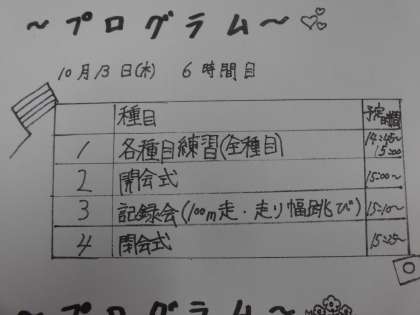 ～プログラム～
10月13日(木) 6時間目
種目 予定時間
1 各種目練習(全種目) 14:45～15:00
2 開会式 15:00～
3 記録会(100m走・走り幅跳び) 15:10～
4 閉会式 15:25～
～プログラム～